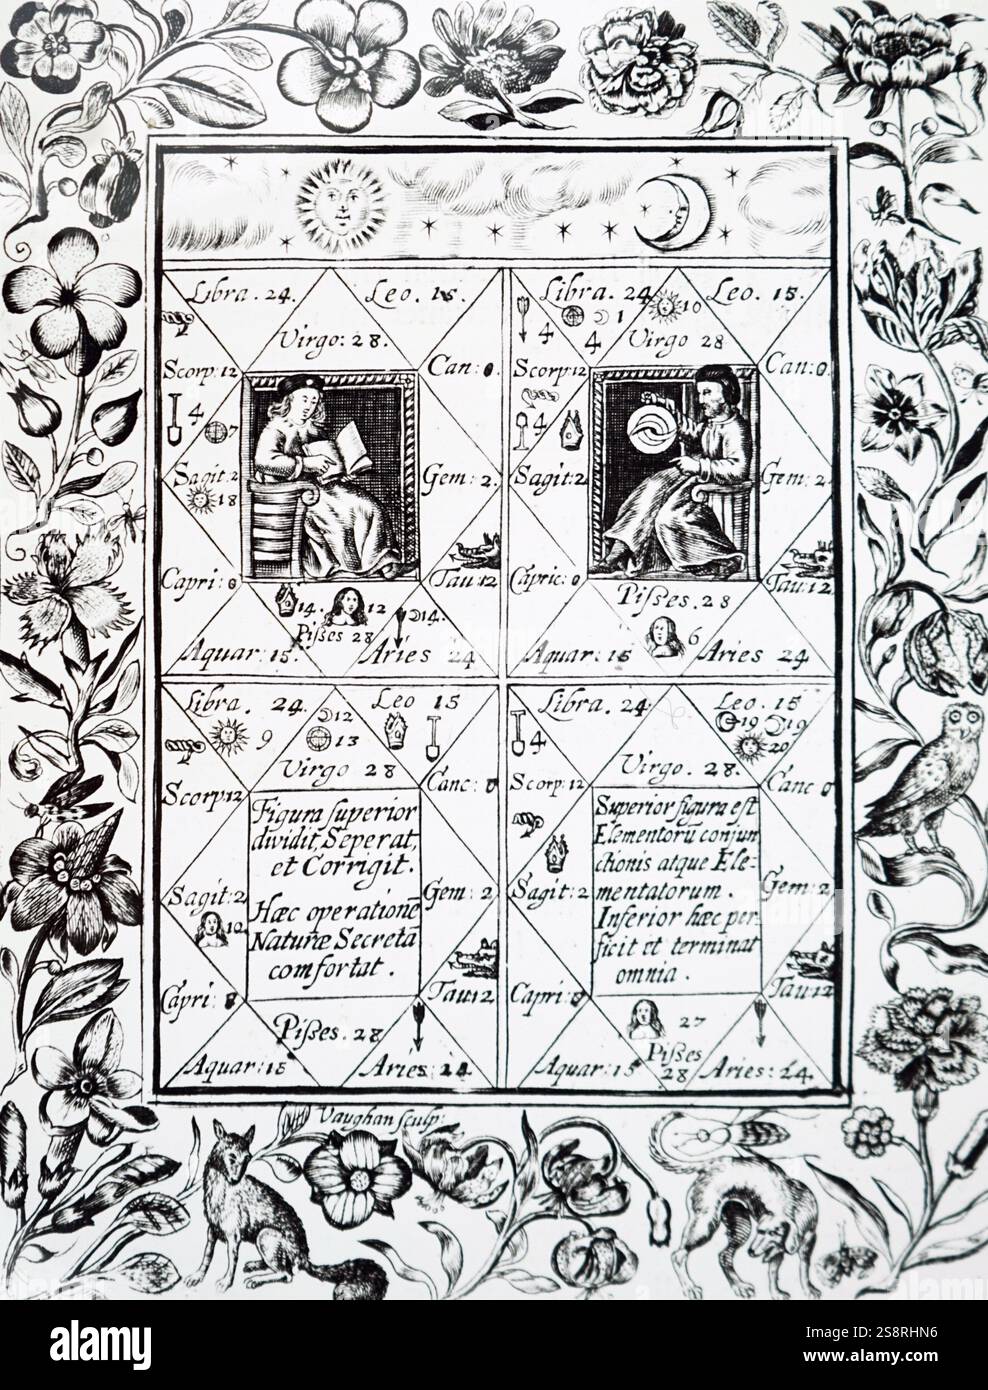 Libra . 24.
Leo . 15
Virgo : 28.
Scorp : 12
Can : 0
4
7
Sagit : 2
18
Gem : 2.
Capri : 0
Tau : 12
14.
12
14.
Pisses 28
Aquar : 15.
Aries 24
Libra . 24
Leo . 15.
4
4
1
10
Virgo 28
Scorp : 12
Can : 0
4
Sagit : 2
Gem : 2.
Capric : 0
Tau : 12
Pisses . 28
6
Aquar : 15
Aries 24
Libra . 24.
Leo 15
9
12
13
Virgo 28
Scorp 12
Canc : 0
Figura superior
dividit, Seperat,
et Corrigit.
Hæc operationē
Naturæ Secreta
comfortat .
Sagit : 2
10
Gem : 2
Capri : 8
Tau : 12
Pisses . 28
Aquar : 15
Aries : 24
Libra . 24.
Leo . 15
4
19
19
20
Virgo . 28.
Scorp : 12
Canc 0
Superior figura est
Elementorū conjun
ctionis atque Ele-
mentatorum .
Inferior hæc per-
ficit et terminat
omnia .
Sagit : 2
Gem : 2
Capri : 0
Tau : 12
27
Pisses
28
Aquar : 15
Aries : 24.
Vaughan sculp :
alamy
Image ID: 2S8RHN6
www.alamy.com